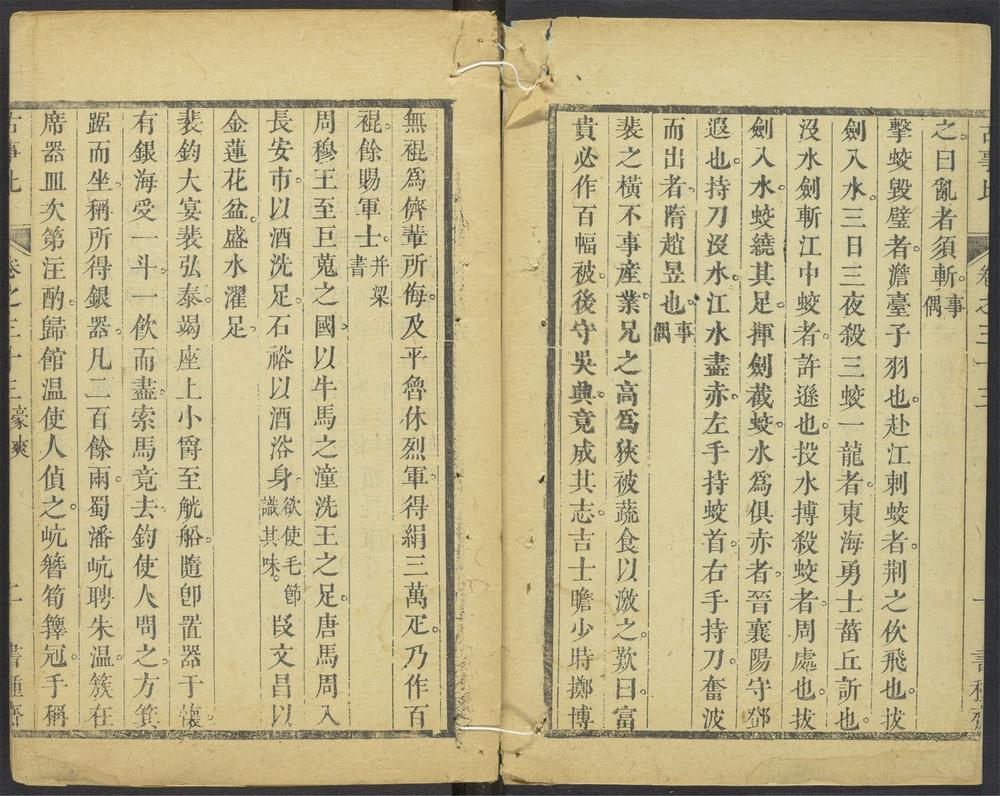 古事比 卷之三十三
之曰亂者須斬事偶
擊蛟毀璧者澹臺子羽也赴江刺蛟者荆之佽飛也拔
劍入水三日三夜殺三蛟一龍者東海勇士菑丘訢也
沒水劍斬江中蛟者許遜也投水搏殺蛟者周處也拔
劍入水蛟繞其足揮劍截蛟水爲俱赤者晉襄陽守鄧
遐也持刀沒水江水盡赤左手持蛟首右手持刀奮波
而出者隋趙昱也事偶
裴之橫不事産業兄之高爲狹被蔬食以激之歎曰富
貴必作百幅被後守吳興竟成其志吉士瞻少時擲博
無裩爲儕輩所侮及平魯休烈軍得絹三萬疋乃作百
裩餘賜軍士并梁書
周穆王至巨蒐之國以牛馬之湩洗王之足唐馬周入
長安市以酒洗足石裕以酒浴身欲使毛節識其味段文昌以
金蓮花盆盛水濯足
裴鈞大宴裴弘泰竭座上小爵至觥船隨卽置器于懷
有銀海受一斗一飲而盡索馬竟去鈞使人問之方箕
踞而坐稱所得銀器凡二百餘兩蜀潘炕聘朱温簇在
席器皿次第注酌歸館温使人偵之炕簪筍籜冠手稱
古事比 卷之三十三豪爽 二 書種齋